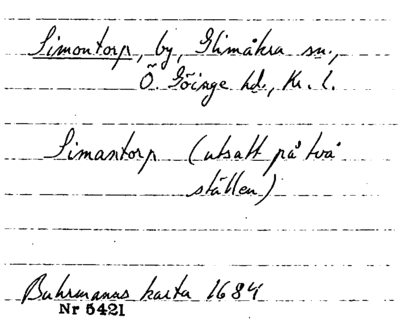 Simontorp, by, Glimåkra sn.,
Ö. Göinge hd., Kr. l.
Simantorp (utsatt på två
ställen)
Buhrmanns karta 1684
Nr 5421